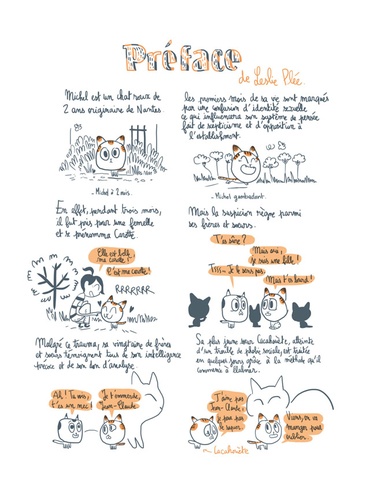 Préface
de Leslie Plée.
Michel est un chat roux de
2 ans originaire de Nantes.
- Michel à 2 mois.
En effet, pendant trois mois,
il fut pris pour une femelle
et se prénomma Carotte.
Elle est belle
ma Carotte !
C'est ma Carotte !
RRRRRRR
Malgré ce trauma, sa vingtaine de frères
et soeurs témoignent tous de son intelligence
précoce et de son don d'analyse.
Ah ! Tu vois,
t'es un mec !
Je t'emmerde,
Jean-Claude
les premiers mois de sa vie sont marqués
par une confusion d'identité sexuelle
ce qui influencera son système de pensée
fait de scepticisme et d'opposition à
l'establishment.
- Michel gambadant.
Mais la suspicion règne parmi
ses frères et soeurs.
T'es sûre ?
Mais oui !
je suis une fille !
Tsss... Je te sens pas.
Mais t'es lourd !
Sa plus jeune soeur Cacahuète, atteinte
d'un trouble de phobie sociale, est traitée
en quelques jours grâce à la méthode qu'il
commence à élaborer.
J'aime pas
Jean-Claude,
je peux pas
le saquer.
Viens, on va
manger pour
oublier.
Cacahuète